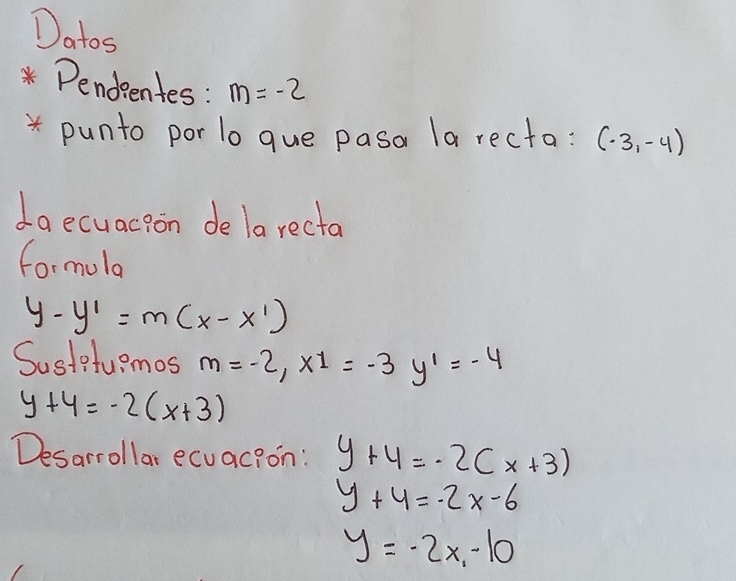 Datos
* Pendientes: m=-2
* punto por lo que pasa la recta: (-3,-4)
La ecuación de la recta
formula
y-y' = m(x-x')
Sustituimos m=-2, x1 = -3 y' = -4
y+4=-2(x+3)
Desarrollar ecuación: y+4=-2(x+3)
y+4=-2x-6
y=-2x,-10